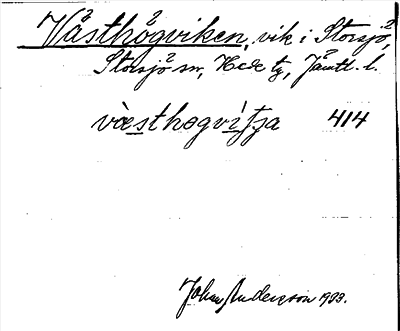 Västhögviken, vik i Storsjö,
Storsjö sn, Hede tg, Jämtl. l.
vàesthøgvìtʃa 414
Johan Anderson 1933.